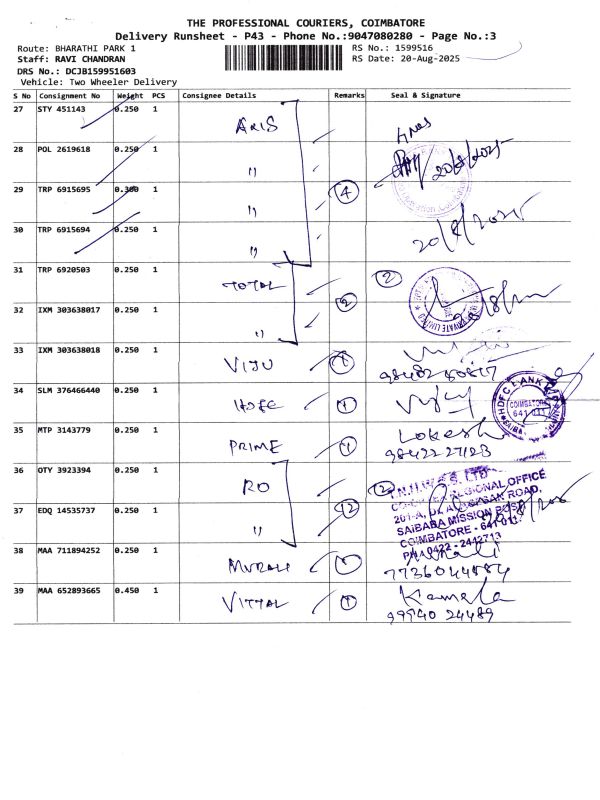 THE PROFESSIONAL COURIERS, COIMBATORE
Delivery Runsheet - P43 - Phone No.:9047080280 - Page No.:3
Route: BHARATHI PARK 1
RS No.: 1599516
Staff: RAVI CHANDRAN
RS Date: 20-Aug-2025
DRS No.: DCJB159951603
Vehicle: Two Wheeler Delivery
S No Consignment No Weight PCS Consignee Details Remarks Seal & Signature
27 STY 451143 0.250 1 ARIS
28 POL 2619618 0.250 1 " 20/8/2025
29 TRP 6915695 0.300 1 " 4
30 TRP 6915694 0.250 1 " 20/8/2025
31 TRP 6920503 0.250 1 TOTAL 2
32 IXM 303638017 0.250 1 " 2
33 IXM 303638018 0.250 1 VIJU 1
34 SLM 376466440 0.250 1 HDFC 1
HDFC BANK
COIMBATORE
641 011
35 MTP 3143779 0.250 1 PRIME 1 Lokesh
9842227123
36 OTY 3923394 0.250 1 RO 2
REGIONAL OFFICE
ROAD,
37 EDQ 14535737 0.250 1 " 2
SAIBABA MISSION POST
COIMBATORE - 641 011
0422 - 2442713
38 MAA 711894252 0.250 1 MURALI 1 Murali
7736044884
39 MAA 652893665 0.450 1 VITTAL 1 Kamala
99940 24489